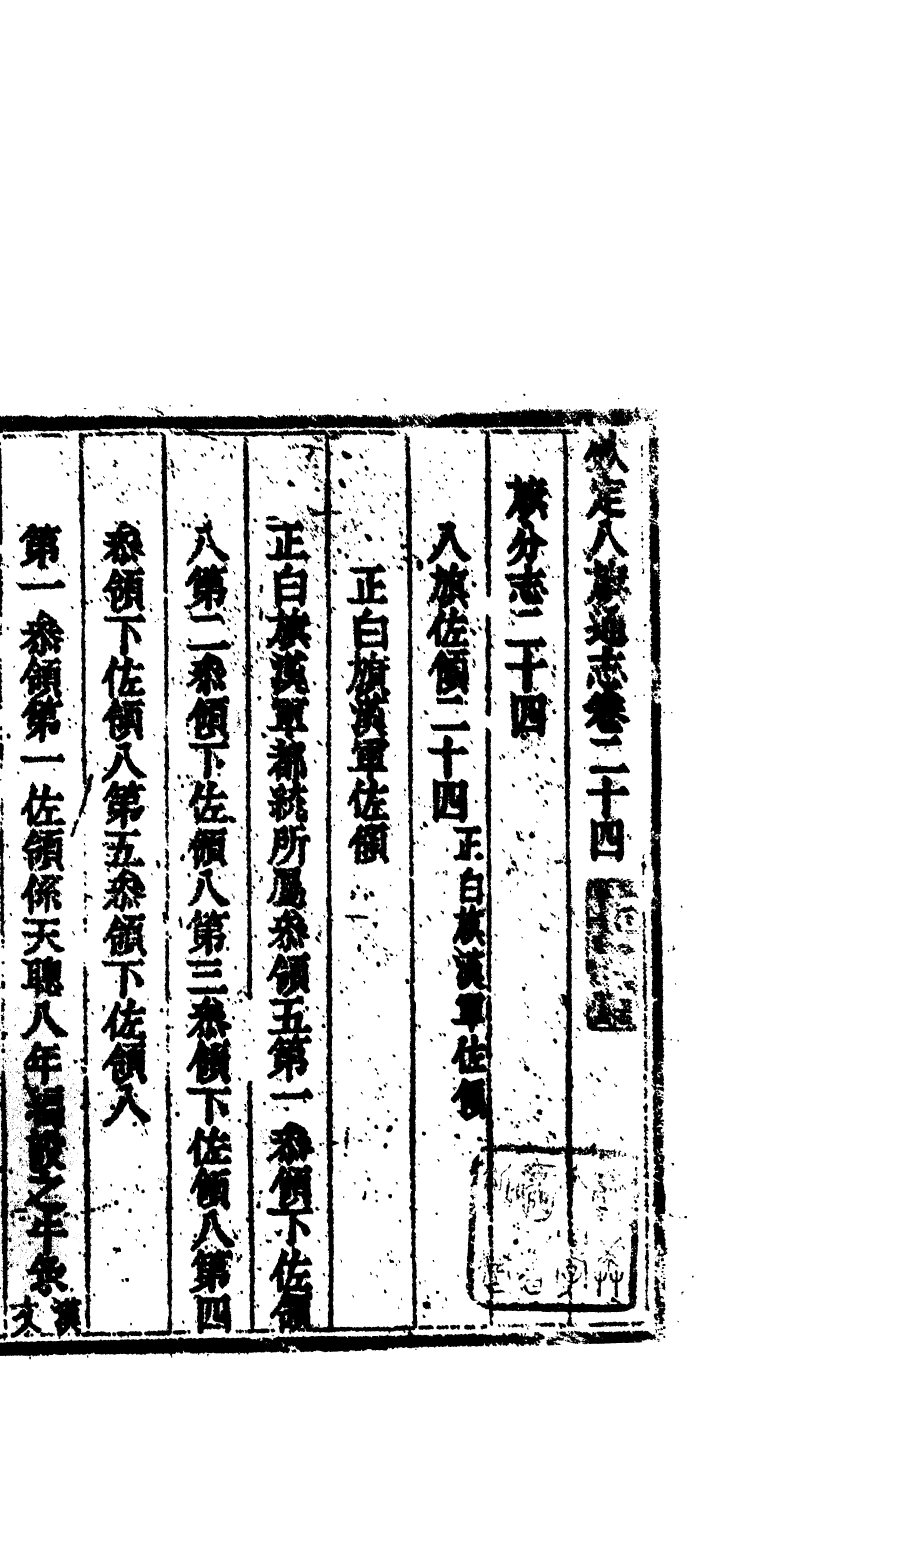 欽定八旗通志卷二十四
旗分志二十四
八旗佐領二十四 正白旗漢軍佐領
正白旗漢軍佐領
正白旗漢軍都統所屬叅領五第一叅領下佐領
八第二叅領下佐領八第三叅領下佐領八第四
叅領下佐領八第五叅領下佐領八
第一叅領第一佐領係天聰八年編設之牛彔漢文